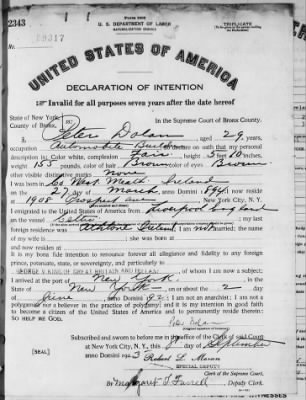 Form 2202
U. S. DEPARTMENT OF LABOR
NATURALIZATION SERVICE
TRIPLICATE
2343
No. 29317
UNITED STATES OF AMERICA
DECLARATION OF INTENTION
Invalid for all purposes seven years after the date hereof
State of New York,
County of Bronx, ss:
In the Supreme Court of Bronx County.
I, Peter Dolan, aged 29 years,
occupation Automobile, do declare on oath that my personal
description is: Color white, complexion Fair, height 5 feet 10 inches,
weight 155 pounds, color of hair Brown, color of eyes Brown
other visible distinctive marks None
I was born in Co West Meath Ireland
on the 27 day of March, anno Domini 1894; I now reside
at 1908 Prospect Ave, New York City, N. Y.
I emigrated to the United States of America from Liverpool England
on the vessel Celtic; my last
foreign residence was Athlone Ireland, I am not married; the name
of my wife is; she was born at
and now resides at
It is my bona fide intention to renounce forever all allegiance and fidelity to any foreign
prince, potentate, state, or sovereignty, and particularly to
GEORGE V KING OF GREAT BRITAIN AND IRELAND, of whom I am now a subject;
I arrived at the port of New York, in the
State of New York, on or about the 2 day
of June, anno Domini 192; I am not an anarchist; I am not a
polygamist nor a believer in the practice of polygamy; and it is my intention in good faith
to become a citizen of the United States of America and to permanently reside therein:
SO HELP ME GOD.
Peter Dolan
Subscribed and sworn to before me in the office of the Clerk of said Court
at New York City, N. Y., this day of September
anno Domini 1923
[SEAL]
Robert L. Moran
SPECIAL DEPUTY
Clerk of the Supreme Court.
By Margaret T. Farrell, Deputy Clerk.
WITNESSES